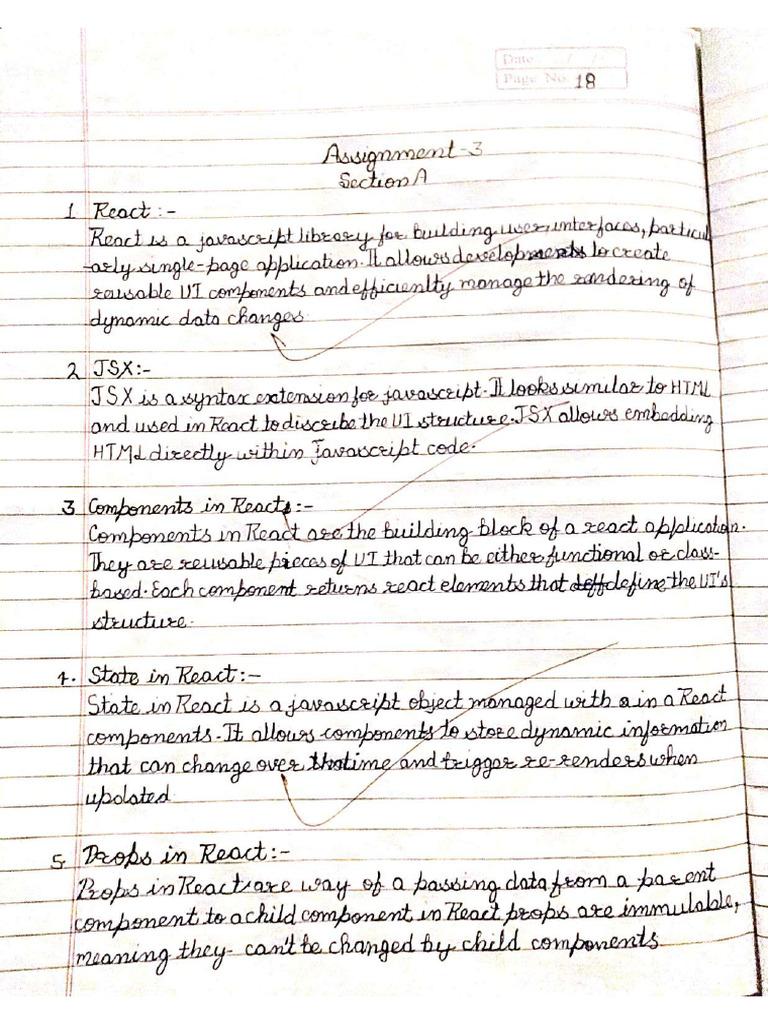 Date / /
Page No. 18
Assignment-3
Section A
1 React :-
React is a javascript library for building user interfaces, particul
-arly single-page application. It allows developments to create
reusable UI components and efficienlty manage the rendering of
dynamic data changes
2 JSX:-
JSX is a syntax extension for javascript. It looks similar to HTML
and used in React to discribe the UI structure. JSX allows embedding
HTML directly within Javascript code.
3 Components in React:-
Components in React are the building block of a react application.
They are reusable pieces of UI that can be either functional or class-
based. Each component returns react elements that define the UI's
structure.
4. State in React:-
State in React is a javascript object managed with in a React
components. It allows components to store dynamic information
that can change over time and trigger re-renders when
updated
5. Props in React:-
Props in React are way of a passing data from a parent
component to a child component in React props are immulable,
meaning they- can't be changed by child components.